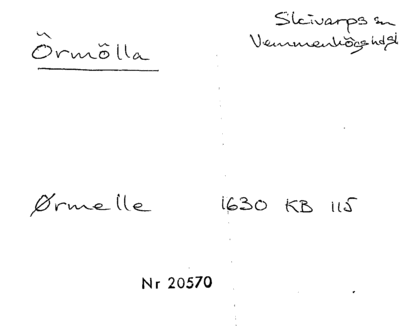 Örmölla
Skivarps sn
Vemmenhögs hd
Ørmelle 1630 KB 115
Nr 20570